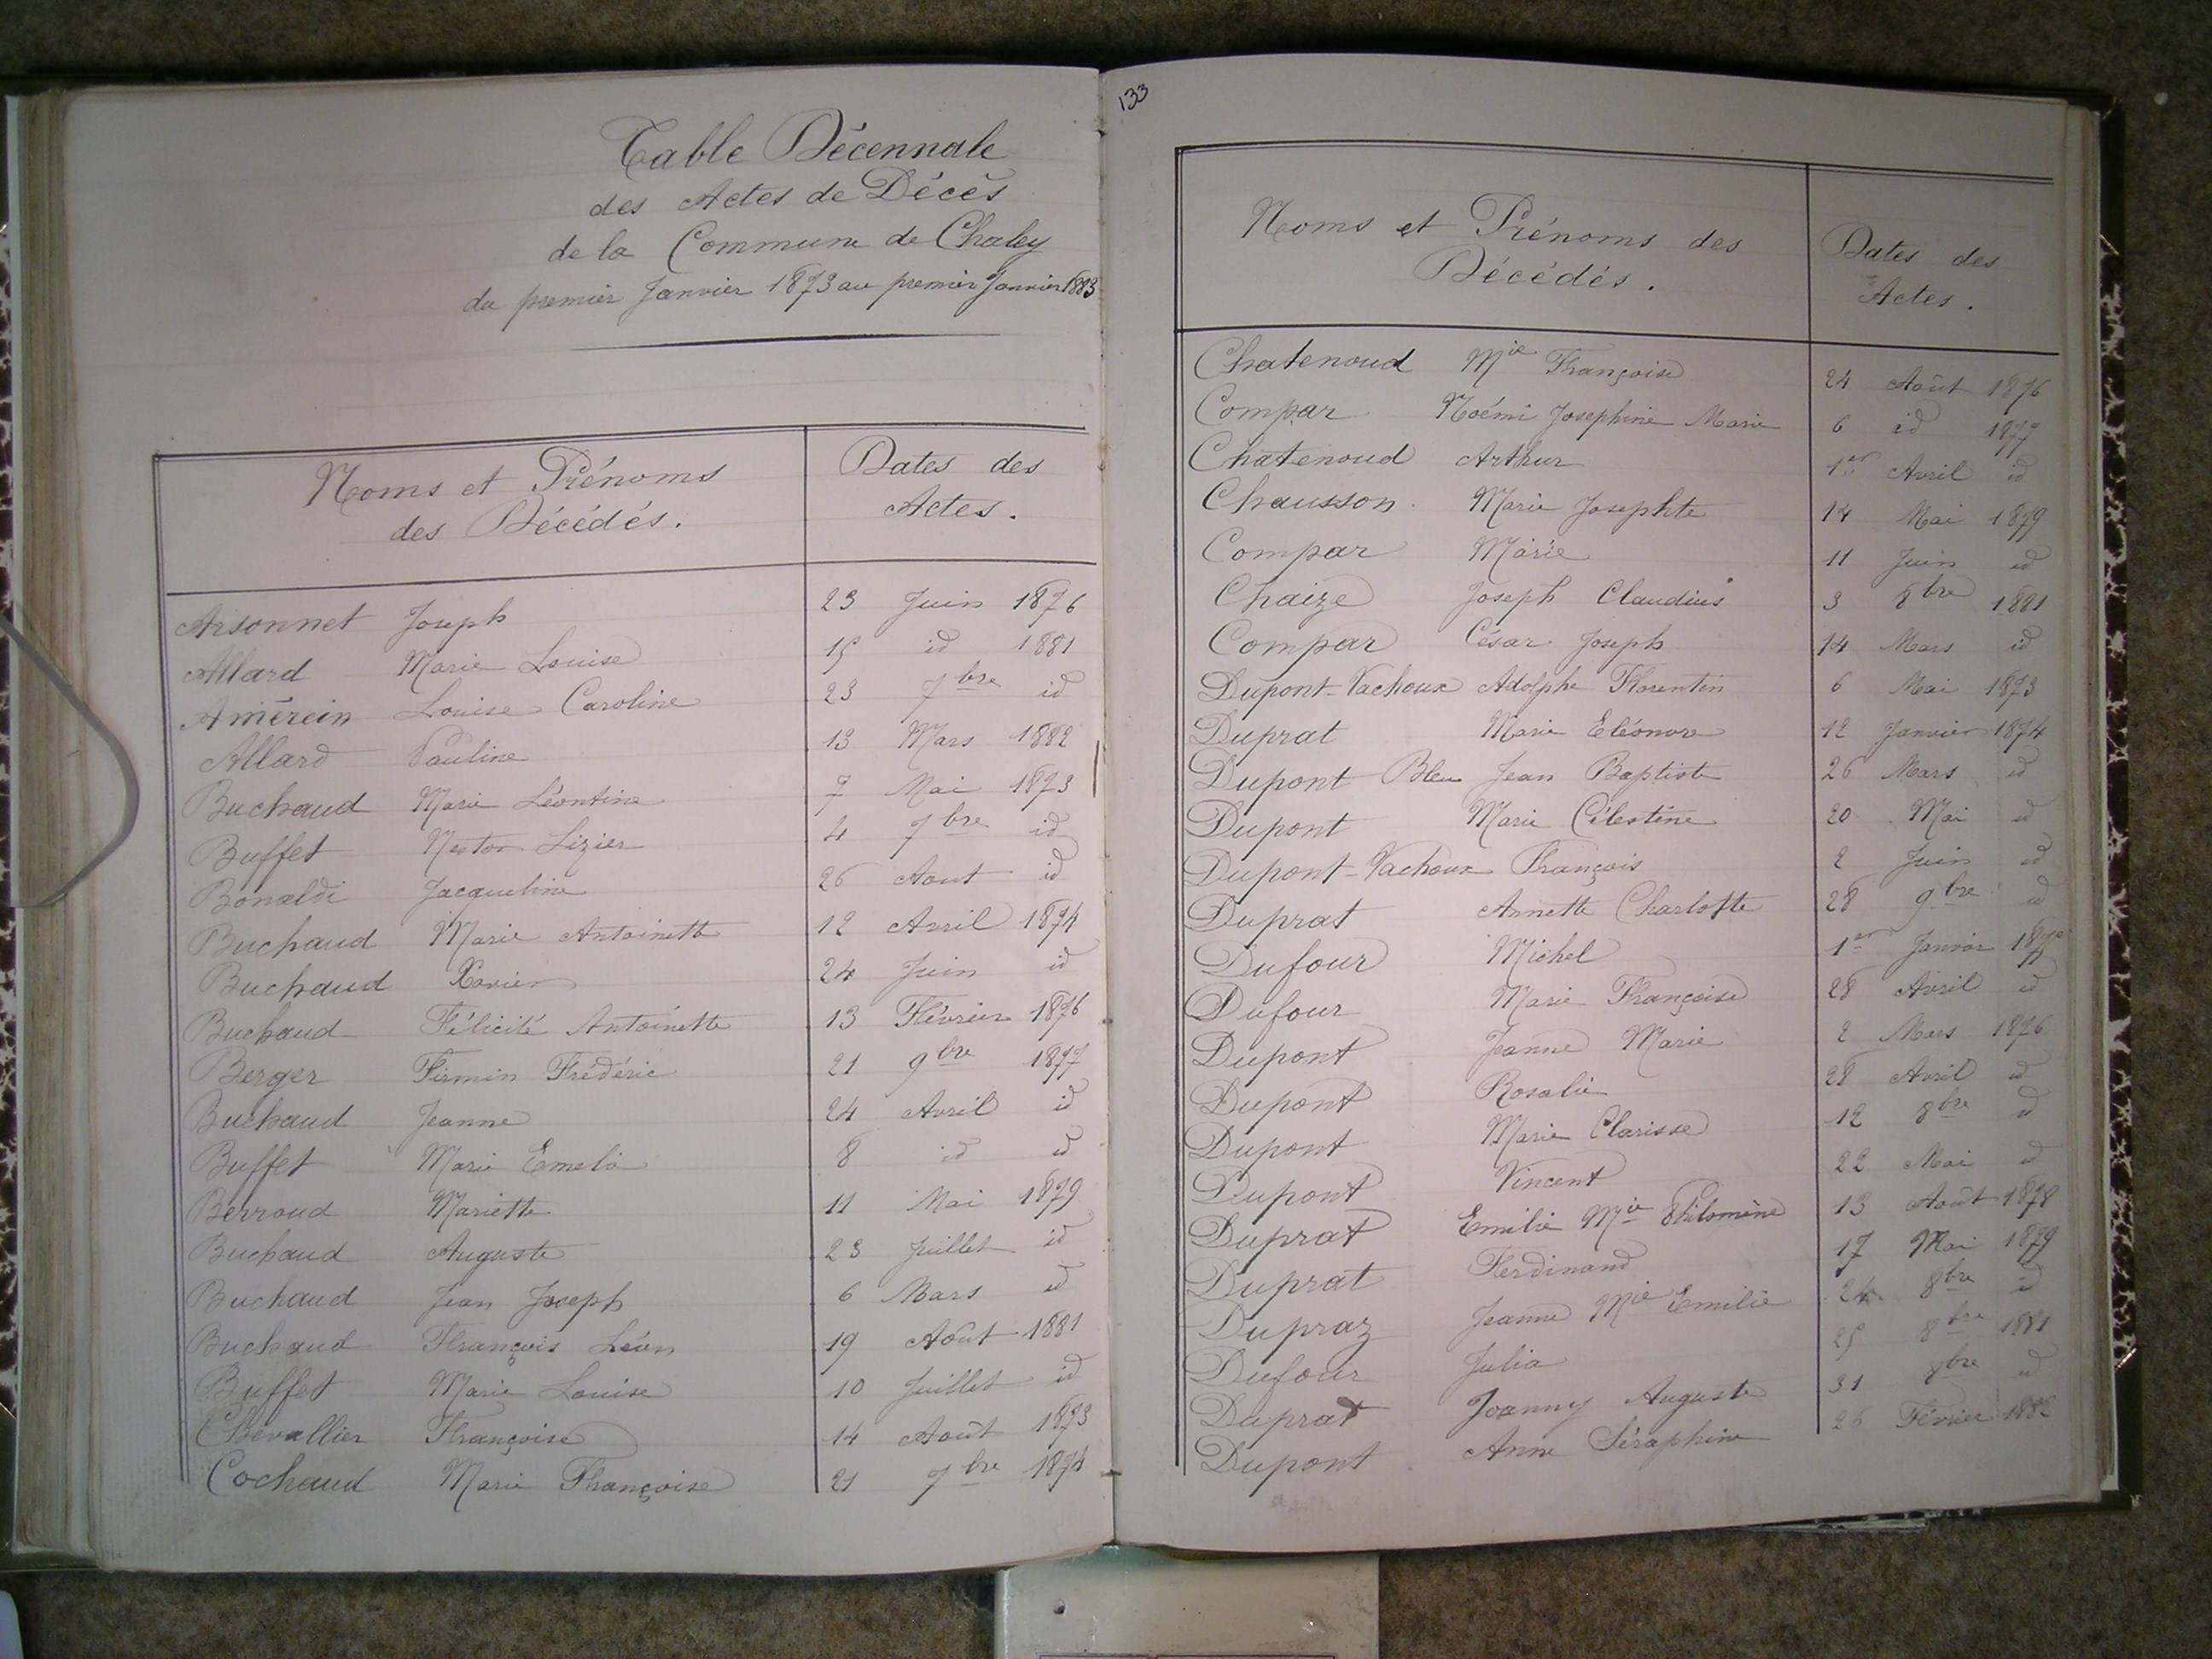 Table Décennale
des Actes de Décès
de la Commune de Chaley
du premier Janvier 1873 au premier Janvier 1883
Noms et Prénoms
des Décédés.
Dates des
Actes.
Arsonnet Joseph 23 Juin 1876
Allard Marie Louise 15 id 1881
Amérein Louise Caroline 23 7bre id
Allard Pauline 13 Mars 1882
Buchaud Marie Léontine 7 Mai 1873
Buffet Nestor Lizier 4 7bre id
Bonaldi Jacqueline 26 Aout id
Buchaud Marie Antoinette 12 Avril 1874
Buchaud Xavier 24 Juin id
Buchaud Félicité Antoinette 13 Février 1876
Berger Firmin Frédéric 21 9bre 1877
Buchaud Jeanne 24 Avril id
Buffet Marie Emelie 8 id id
Berroud Mariette 11 Mai 1879
Buchaud Auguste 23 Juillet id
Buchaud Jean Joseph 6 Mars id
Buchaud François Léon 19 Août 1881
Buffet Marie Louise 10 Juillet id
Chevallier Françoise 14 Août 1873
Cochaud Marie Françoise 21 7bre 1874
133
Noms et Prénoms des
Décédés.
Dates des
Actes.
Chatenoud Mie Françoise 24 Août 1876
Compar Noémi Josephine Marie 6 id 1877
Chatenoud Arthur 1er Avril id
Chausson Marie Josephte 14 Mai 1879
Compar Marie 11 Juin id
Chaize Joseph Claudius 3 8bre 1881
Compar César Joseph 14 Mars id
Dupont-Vachoux Adolphe Florentin 6 Mai 1873
Duprat Marie Eléonore 12 Janvier 1874
Dupont Bleu Jean Baptiste 26 Mars id
Dupont Marie Célestine 20 Mai id
Dupont-Vachoux François 2 Juin id
Duprat Annette Charlotte 28 9bre id
Dufour Michel 1er Janvier
Dufour Marie Françoise 28 Avril id
Dupont Jeanne Marie 2 Mars 1876
Dupont Rosalie 28 Avril id
Dupont Marie Clarisse 12 8bre id
Dupont Vincent 22 Mai id
Duprat Emilie Mie Philomène 13 Août 1878
Duprat Ferdinand 17 Mai 1879
Dupraz Jeanne Mie Emilie 24 8bre id
Dufour Julia 25 8bre 1881
Duprat Joanny Auguste 31 8bre id
Dupont Anne Séraphine 26 Février 1882